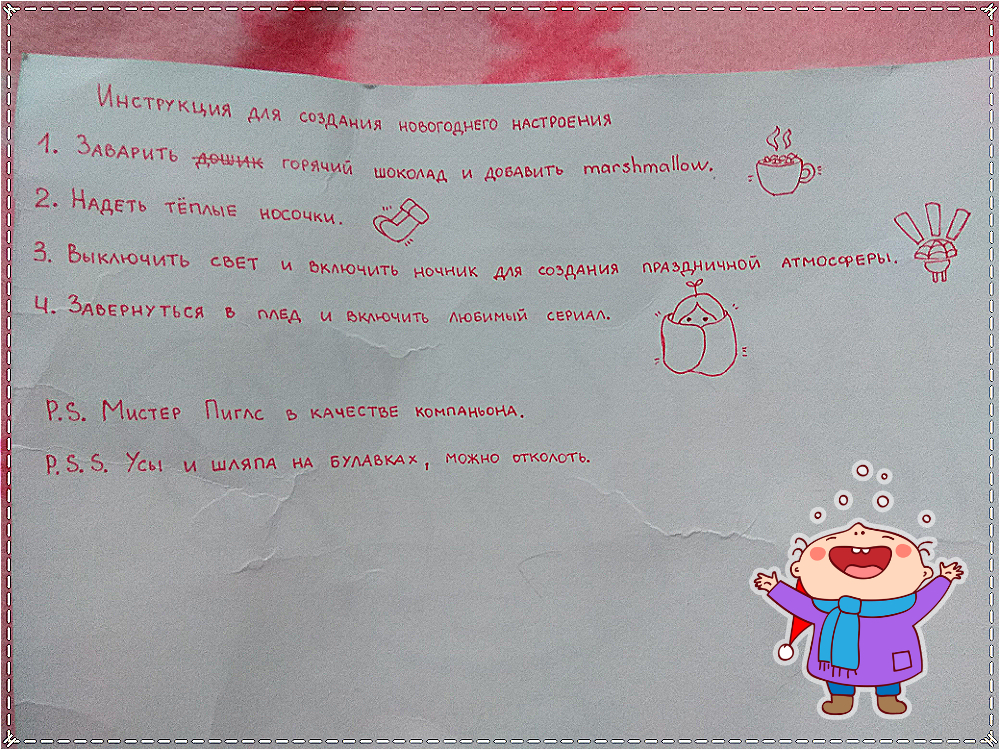 Инструкция для создания новогоднего настроения
1. Заварить дошик горячий шоколад и добавить marshmallow.
2. Надеть тёплые носочки.
3. Выключить свет и включить ночник для создания праздничной атмосферы.
4. Завернуться в плед и включить любимый сериал.
P.S. Мистер Пиглс в качестве компаньона.
P.S.S. Усы и шляпа на булавках, можно отколоть.